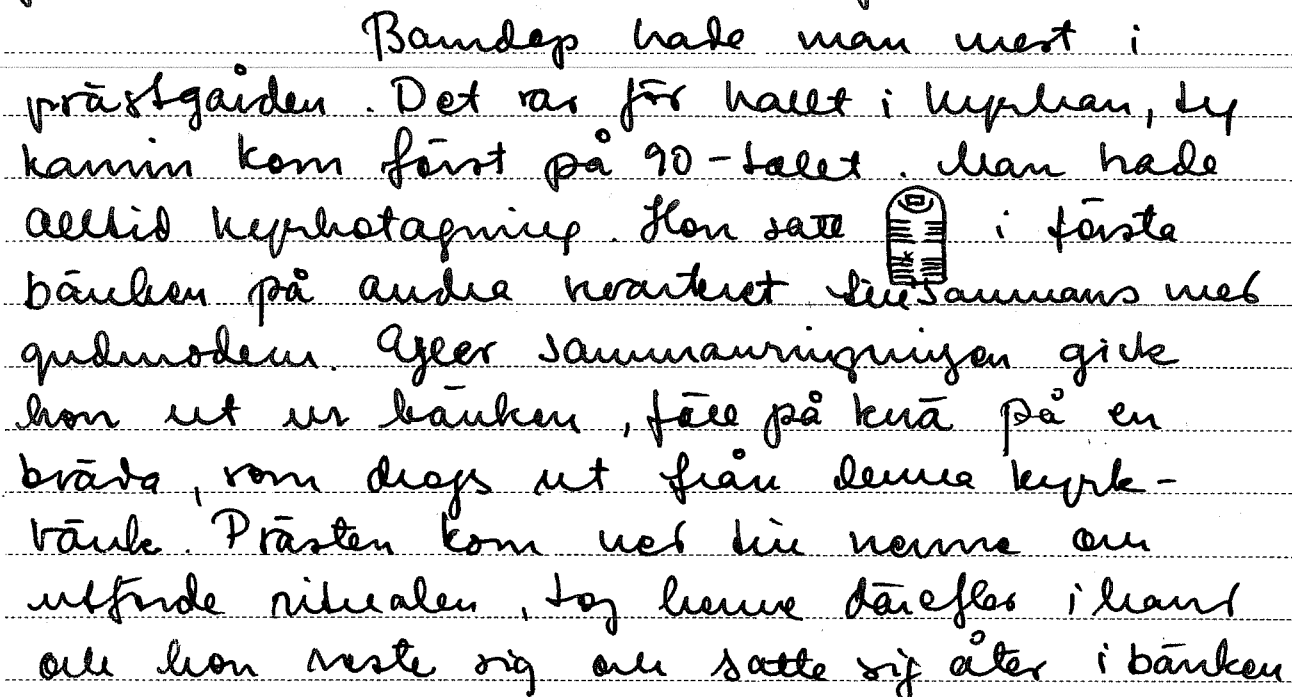 Barndop hade man mest i
prästgården. Det var för kallt i kyrkan, ty
kamin kom först på 90-talet. Man hade
alltid kyrkotagning. Hon satt i första
bänken på andra kvarteret tillsammans med
gudmodern. Efter sammanringningen gick
hon ut ur bänken, föll på knä på en
bräda, som drags ut från denna kyrk-
bänk. Prästen kom ned till henne och
utförde ritualen, tog henne därefter i hand
och hon reste sig och satte sig åter i bänken